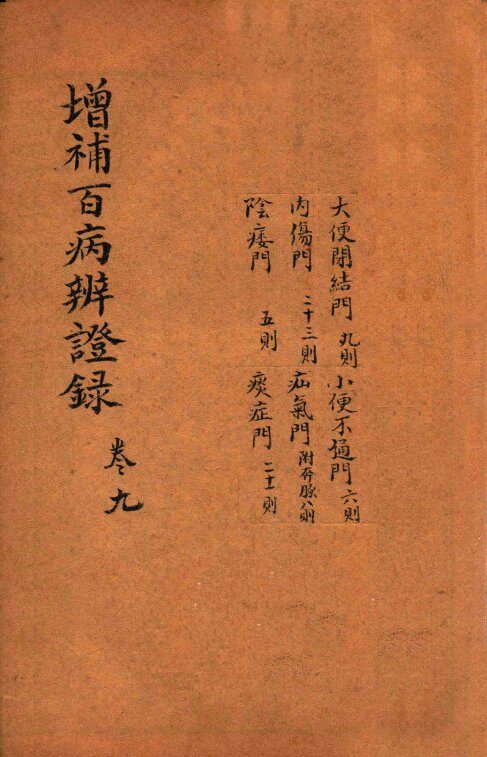 大便閉結門 九則 小便不通門 六則
內傷門 二十三則 疝氣門 附奔豚八則
陰痿門 五則 痰症門 二十一則
增補百病辨證錄 卷九